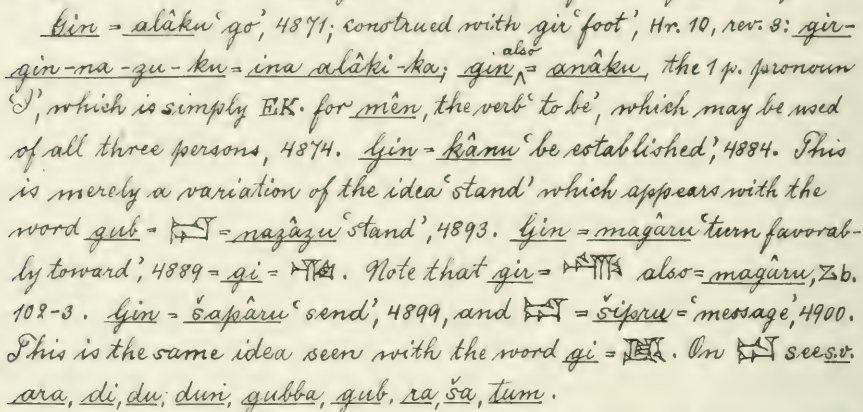 Gin = alâku 'go', 4871; construed with gir 'foot', Hr. 10, rev. 3: gir-
gin-na-zu-ku = ina alâki-ka; gin also = anâku, the 1 p. pronoun
'I', which is simply EK. for mên, the verb 'to be', which may be used
of all three persons, 4874. Gin = kânu 'be established', 4884. This
is merely a variation of the idea 'stand' which appears with the
word gub = 𒁺 = nazâzu 'stand', 4893. Gin = magâru 'turn favorab-
ly toward', 4889 = gi = 𒄀. Note that gir = also = magâru, Zb.
102-3. Gin = šapâru 'send', 4899, and 𒁺 = šipru = 'message', 4900.
This is the same idea seen with the word gi = . On 𒁺 see s.v.
ara, di, du; dun, gubba, gub, ra, ša, tum.